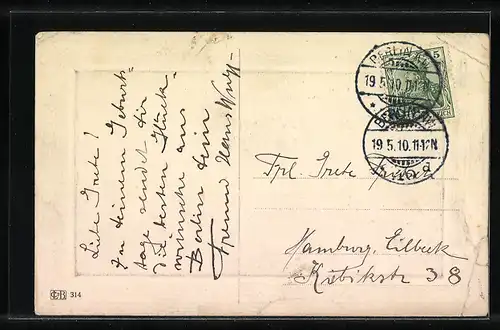 Liebe Grete!
Zu deinem Geburts-
tage sendet dir
die besten Glück-
wünsche aus
Berlin dein
Freund Hans
BERLIN
5
19.5.10. 11-12N
BERLIN
19.5.10.11-12N
Frl. Grete
Hamburg, Eilbeck
Kibikstr 38
314